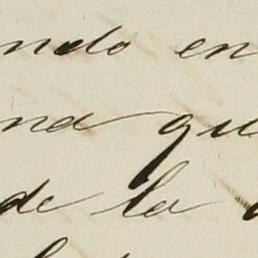 ndo en
na qu
de la